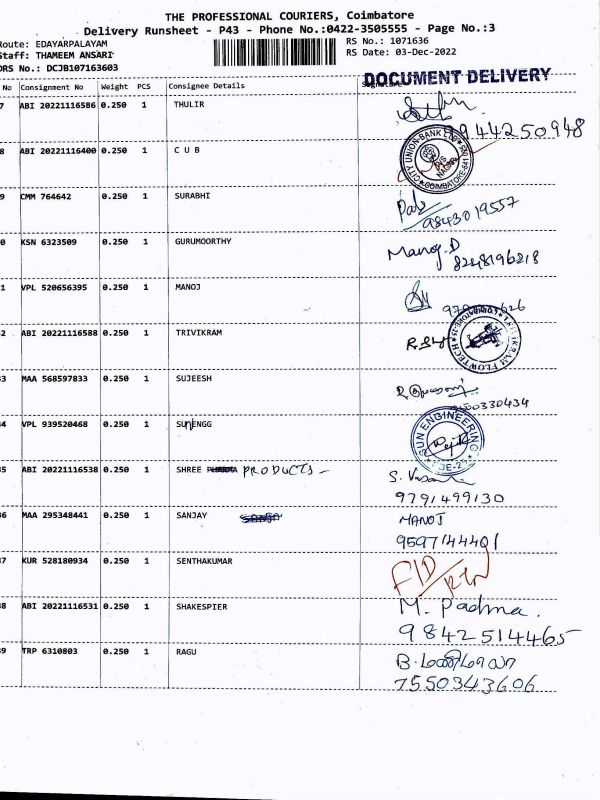 THE PROFESSIONAL COURIERS, Coimbatore
Delivery Runsheet - P43 - Phone No.:0422-3505555 - Page No.:3
Route: EDAYARPALAYAM
RS No.: 1071636
Staff: THAMEEM ANSARI
RS Date: 03-Dec-2022
DRS No.: DCJB107163603
DOCUMENT DELIVERY
No Consignment No Weight PCS Consignee Details Signature
7 ABI 20221116586 0.250 1 THULIR
9944250948
8 ABI 20221116400 0.250 1 C U B
CITY UNION BANK LTD
COIMBATORE-641
9 CMM 764642 0.250 1 SURABHI
9843019557
0 KSN 6323509 0.250 1 GURUMOORTHY
Manoj.D
8248196218
1 VPL 520656395 0.250 1 MANOJ
2 ABI 20221116588 0.250 1 TRIVIKRAM
FLOWTECH
3 MAA 568597833 0.250 1 SUJEESH
4 VPL 939520468 0.250 1 SUNENGG
SUN ENGINEERING
5 ABI 20221116538 0.250 1 SHREE PRODUCTS -
9791499130
6 MAA 295348441 0.250 1 SANJAY
MANOJ
9597144401
7 KUR 528180934 0.250 1 SENTHAKUMAR
8 ABI 20221116531 0.250 1 SHAKESPIER
M. Padma.
9842514465
9 TRP 6310803 0.250 1 RAGU
7550343606